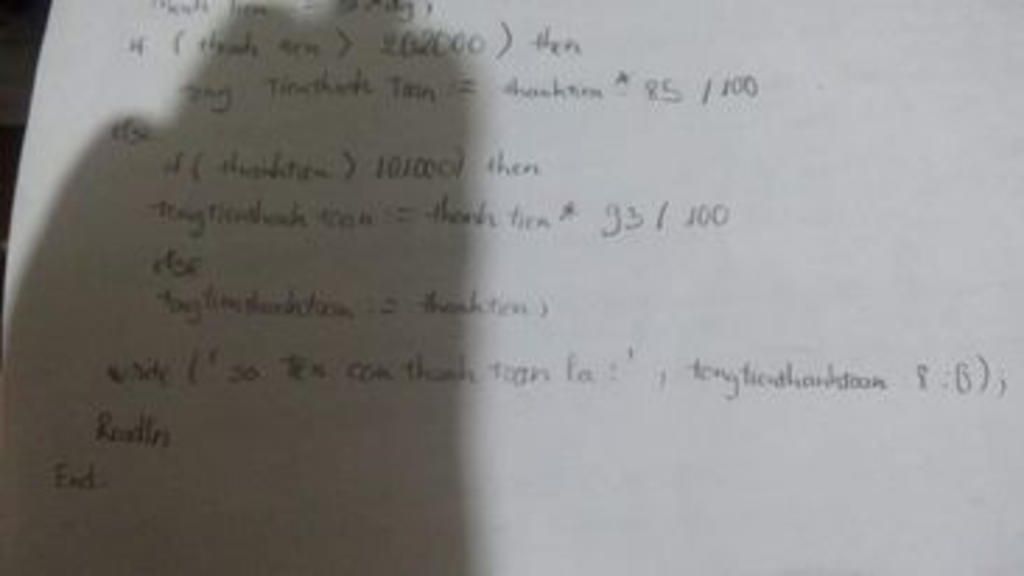 if ( thanh tien > 202000 ) then
tong Tienthanh Toan := thanhtien * 85 / 100
else
if ( thanhtien > 101000) then
tongtienthanh toan := thanh tien * 93 / 100
else
tongtienthanhtoan := thanhtien;
write (' so Tien can thanh toan la : ' , tongtienthanhtoan 8 : 0);
Readln
End.